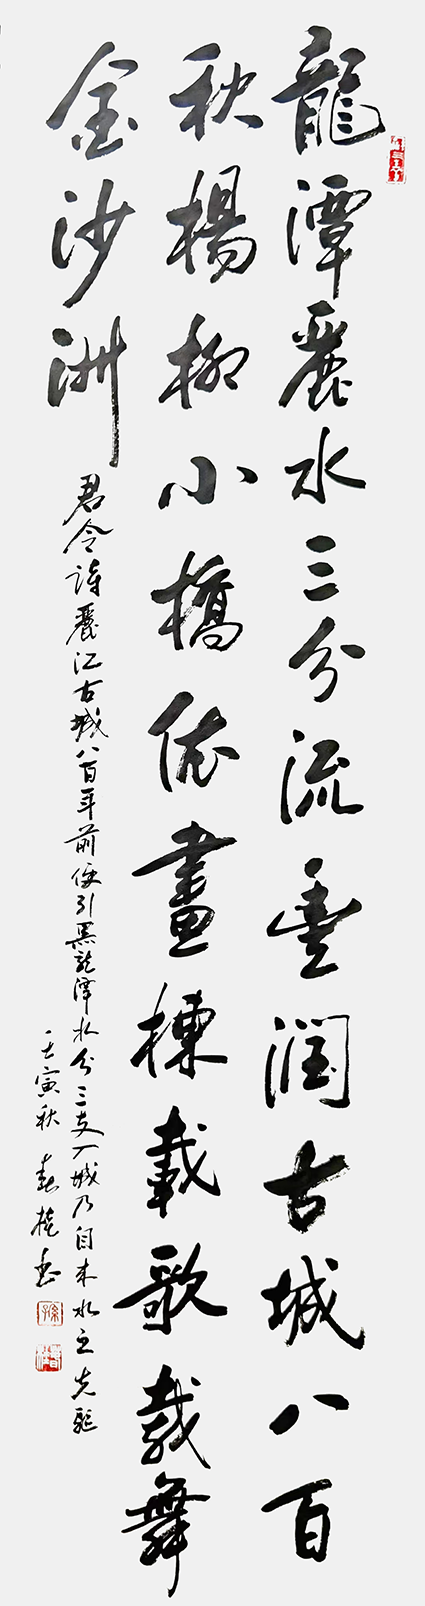 龍潭麗水三分流豐潤古城八百
秋楊柳小橋依畫棟載歌載舞
金沙洲
君令詩麗江古城八百年前便引黑龍潭水分三支入城乃自来水之先驅
壬寅秋 春桂书